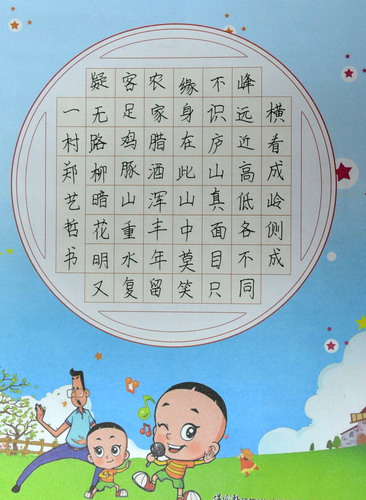 横看成岭侧成
峰远近高低各不同
不识庐山真面目只
缘身在此山中莫笑
农家腊酒浑丰年留
客足鸡豚山重水复
疑无路柳暗花明又
一村郑艺哲书